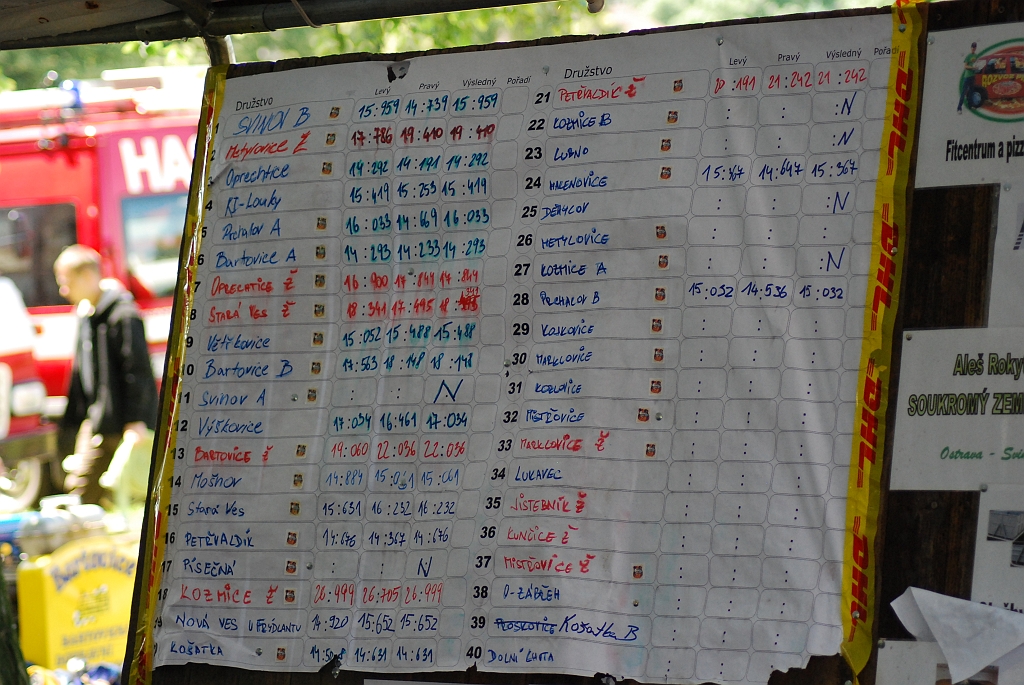 Družstvo Levý Pravý Výsledný Pořadí
1 SVINOV B 15:959 14:739 15:959
2 Metylovice Ž 17:786 19:410 19:410
3 Oprechtice 14:292 14:191 14:292
4 KJ-Louky 15:419 15:253 15:419
5 Prchalov A 16:033 14:669 16:033
6 Bartovice A 14:293 14:233 14:293
7 OPRECHTICE Ž 16:900 17:841 17:841
8 STARÁ VES Ž 18:341 17:495 18:341
9 Větřkovice 15:052 15:488 15:488
10 Bartovice B 17:563 18:148 18:148
11 Svinov A : : N
12 Výškovice 17:034 16:461 17:034
13 BARTOVICE Ž 19:060 22:036 22:036
14 Mošnov 14:884 15:061 15:061
15 Stará Ves 15:631 16:232 16:232
16 PETŘVALDÍK 14:676 14:367 14:676
17 PÍSEČNÁ : : N
18 KOZMICE Ž 26:999 26:705 26:999
19 NOVÁ VES U FRÝDLANTU 14:920 15:652 15:652
KOŠATKA 14:631 14:631
Družstvo Levý Pravý Výsledný Pořadí
21 PETŘVALDÍK Ž 20:191 21:242 21:242
22 KOZMICE B :N
23 LUBNO :N
24 HALENOVICE 15:367 14:647 15:367
25 DĚHYLOV : : :N
26 METYLOVICE : : :
27 KOZMICE A : : :N
28 PRCHALOV B 15:032 14:536 15:032
29 KOJKOVICE : : :
30 MARKLOVICE : : :
31 KOZLOVICE : : :
32 MISTŘOVICE : : :
33 MARKLOVICE Ž : : :
34 LUKAVEC : : :
35 JISTEBNÍK Ž : : :
36 KUNČICE Ž : : :
37 MISTŘOVICE Ž : : :
38 O-ZÁBŘEH : : :
39 PLOSKOVICE Košatka B : : :
40 DOLNÍ LHOTA : : :
HA
DHL
DHL
DHL
DHL
Fitcentrum a pizz
Aleš Roky
SOUKROMÝ ZEM
Ostrava - Svi
Bartovice